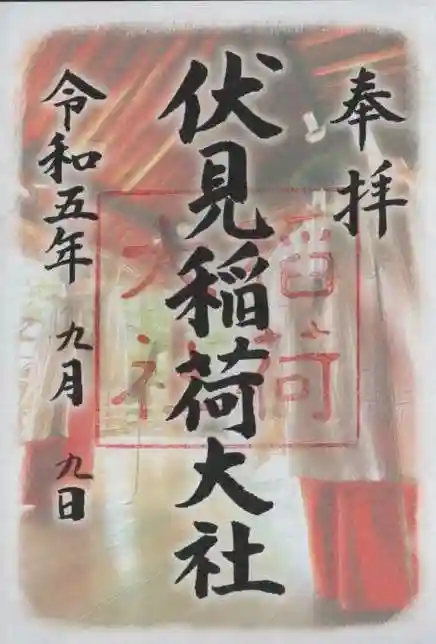 奉拝
伏見稲荷大社
稲荷大社
令和五年 九月 九日